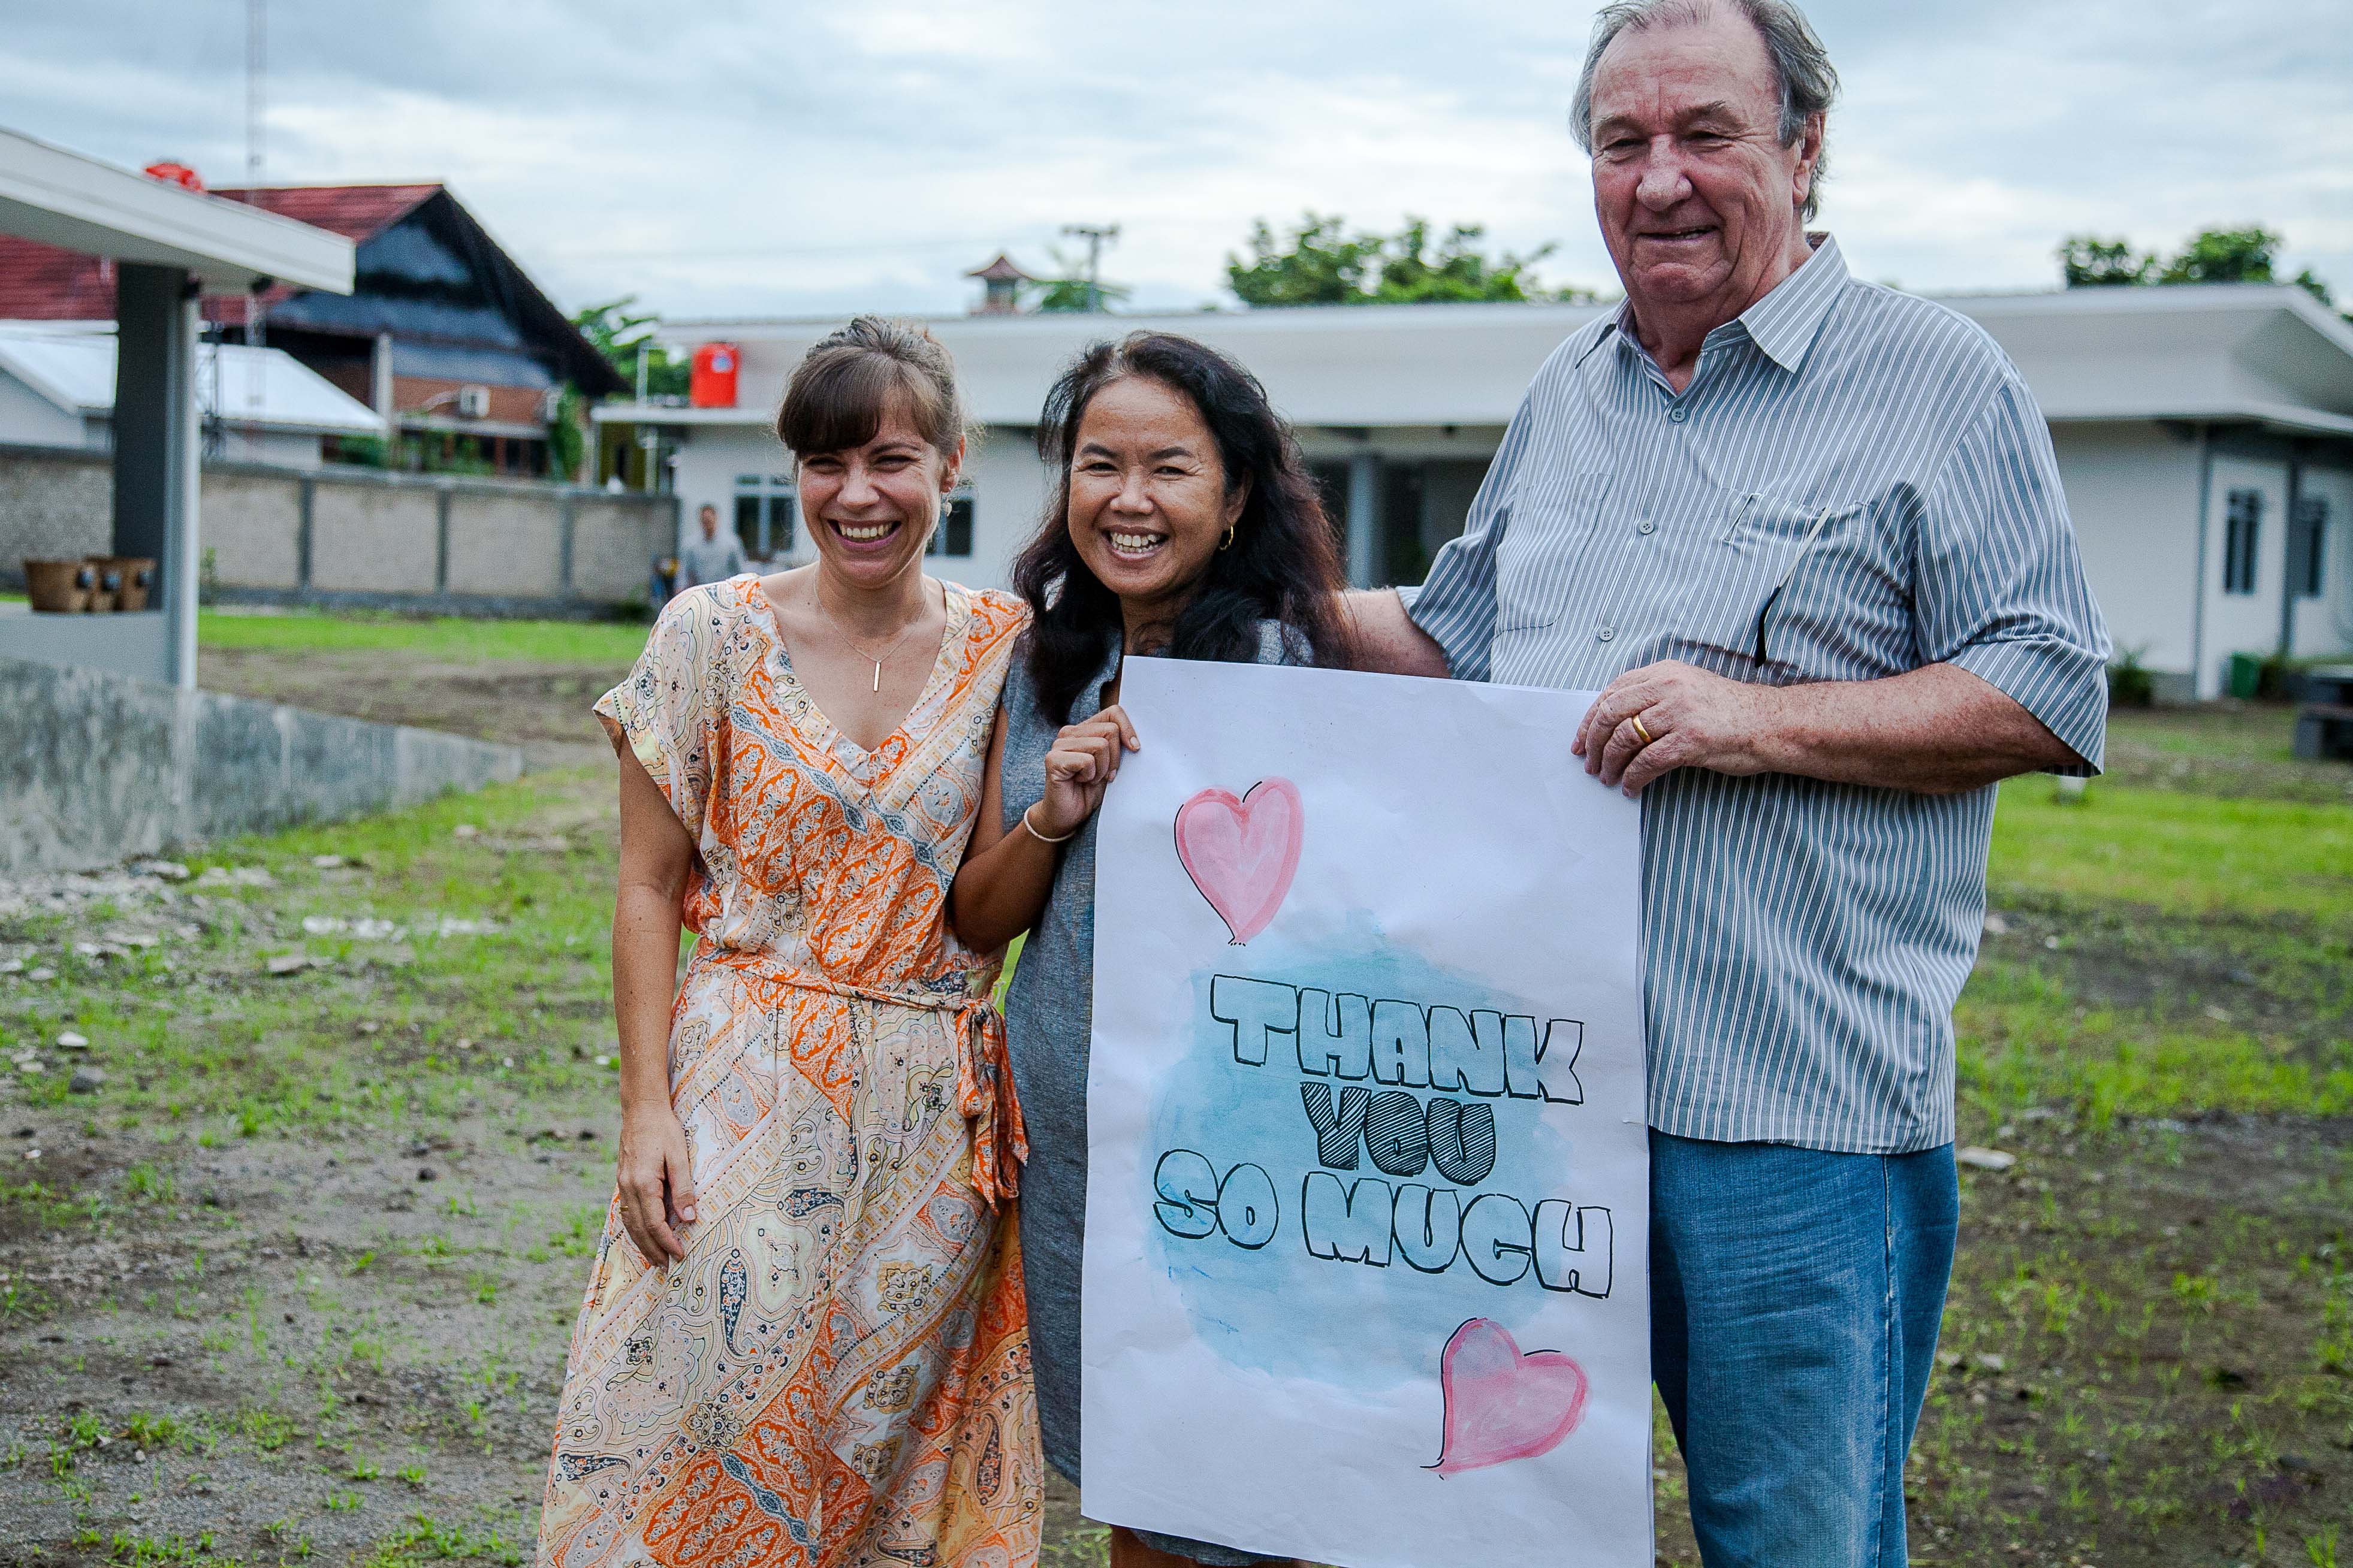 THANK
YOU
SO MUCH